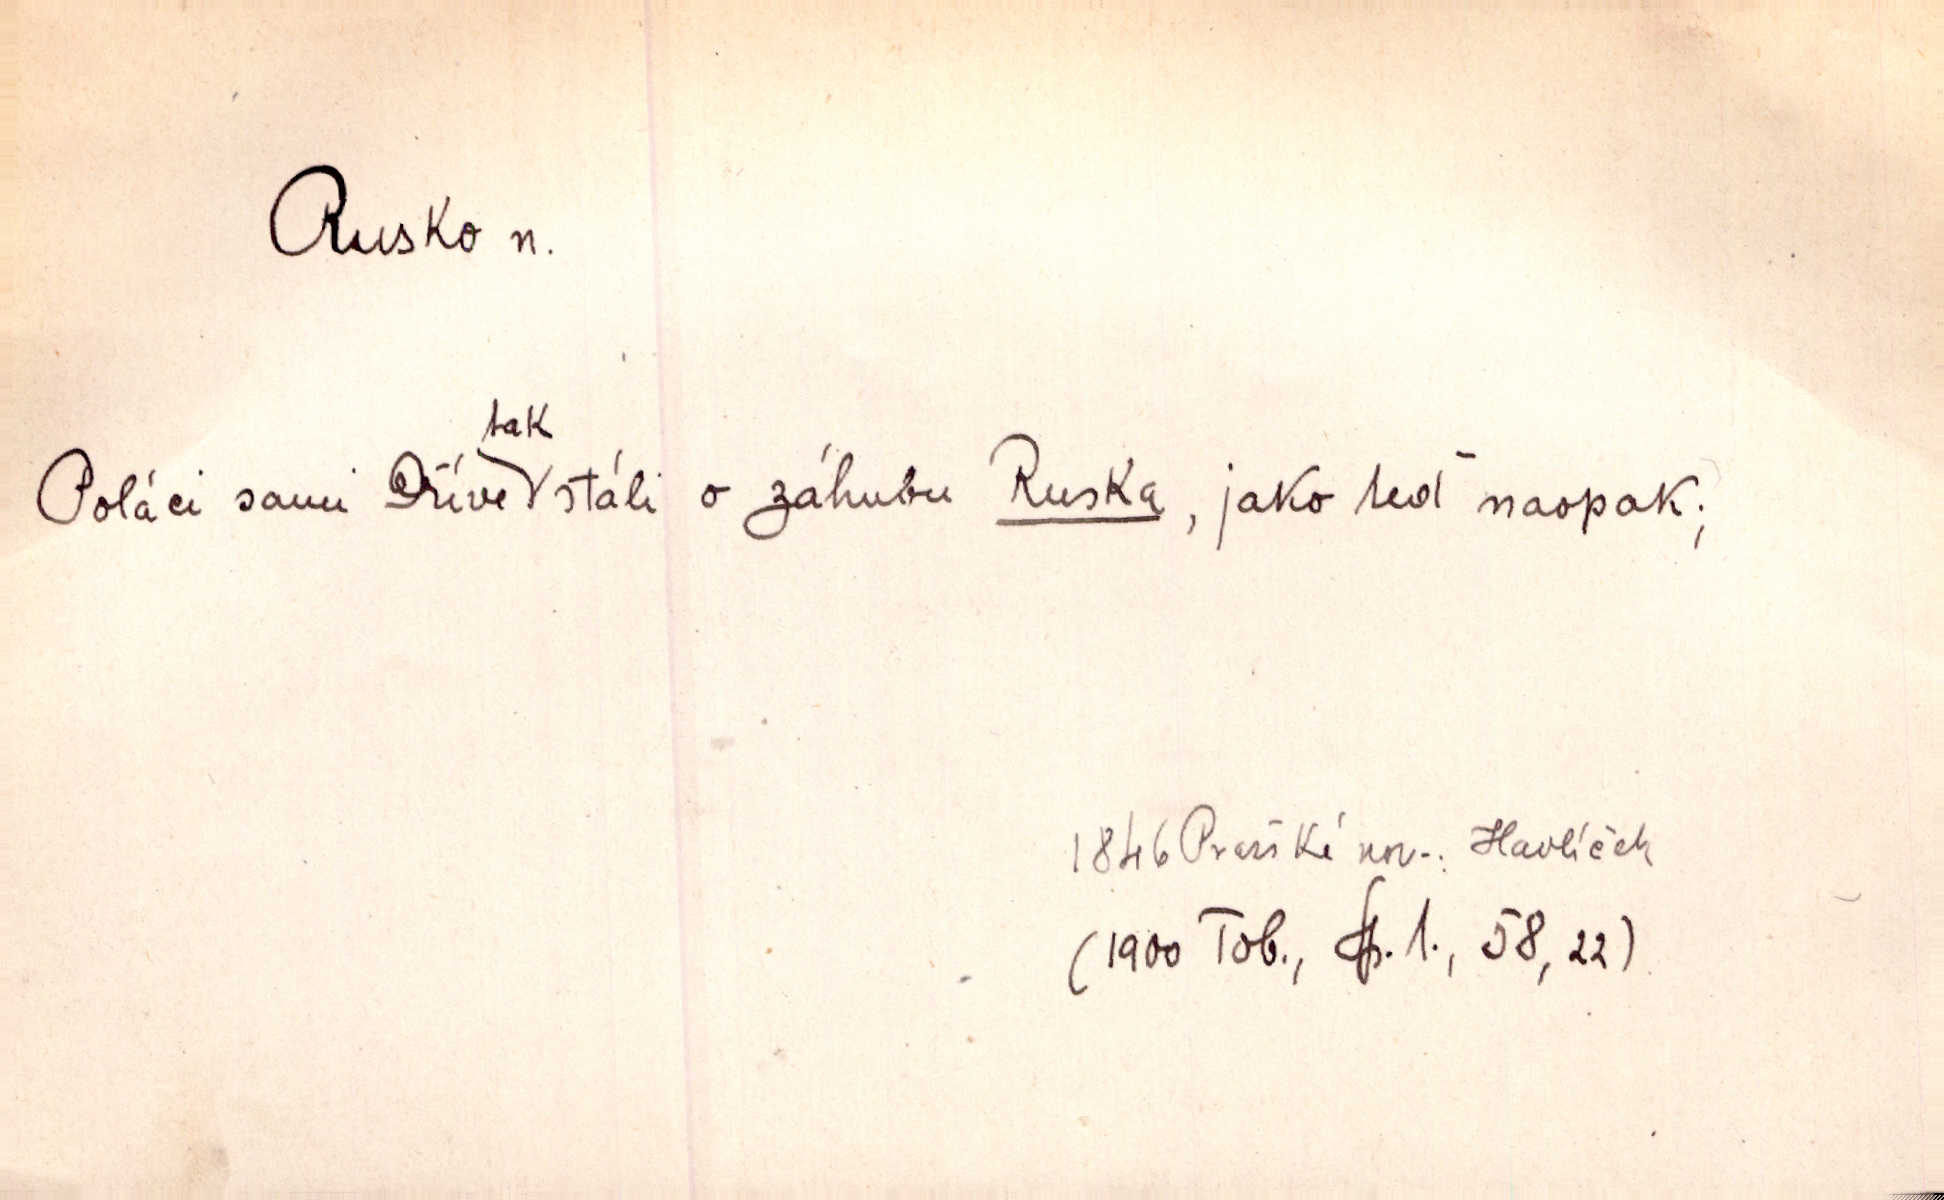 Rusko n.
Poláci sami Dříve tak stáli o záhubu Ruska, jako teď naopak;
1846 Pražské nov.: Havlíček
(1900 Tob., Sp. 1., 58, 22)